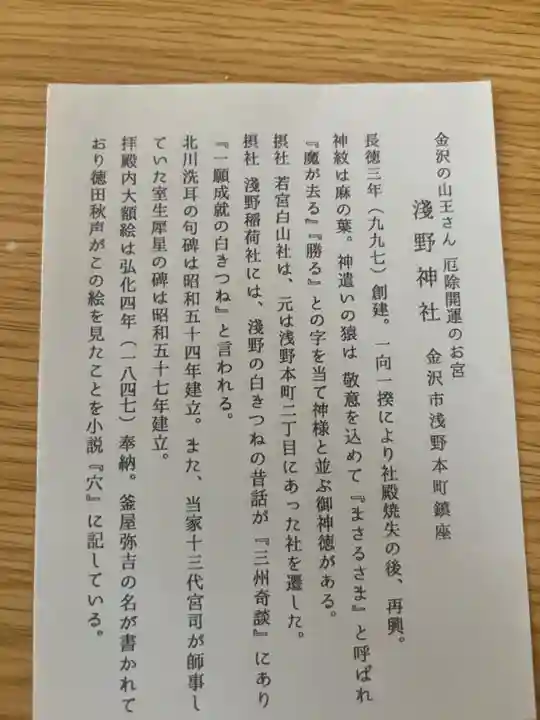 金沢の山王さん 厄除開運のお宮
淺野神社 金沢市浅野本町鎮座
長徳三年（九九七）創建。一向一揆により社殿焼失の後、再興。
神紋は麻の葉。神遣いの猿は 敬意を込めて『まさるさま』と呼ばれ
『魔が去る』『勝る』との字を当て神様と並ぶ御神徳がある。
摂社 若宮白山社は、元は浅野本町二丁目にあった社を遷した。
摂社 淺野稲荷社には、淺野の白きつねの昔話が『三州奇談』にあり
『一願成就の白きつね』と言われる。
北川洗耳の句碑は昭和五十四年建立。また、当家十三代宮司が師事し
ていた室生犀星の碑は昭和五十七年建立。
拝殿内大額絵は弘化四年（一八四七）奉納。釜屋弥吉の名が書かれて
おり徳田秋声がこの絵を見たことを小説『穴』に記している。